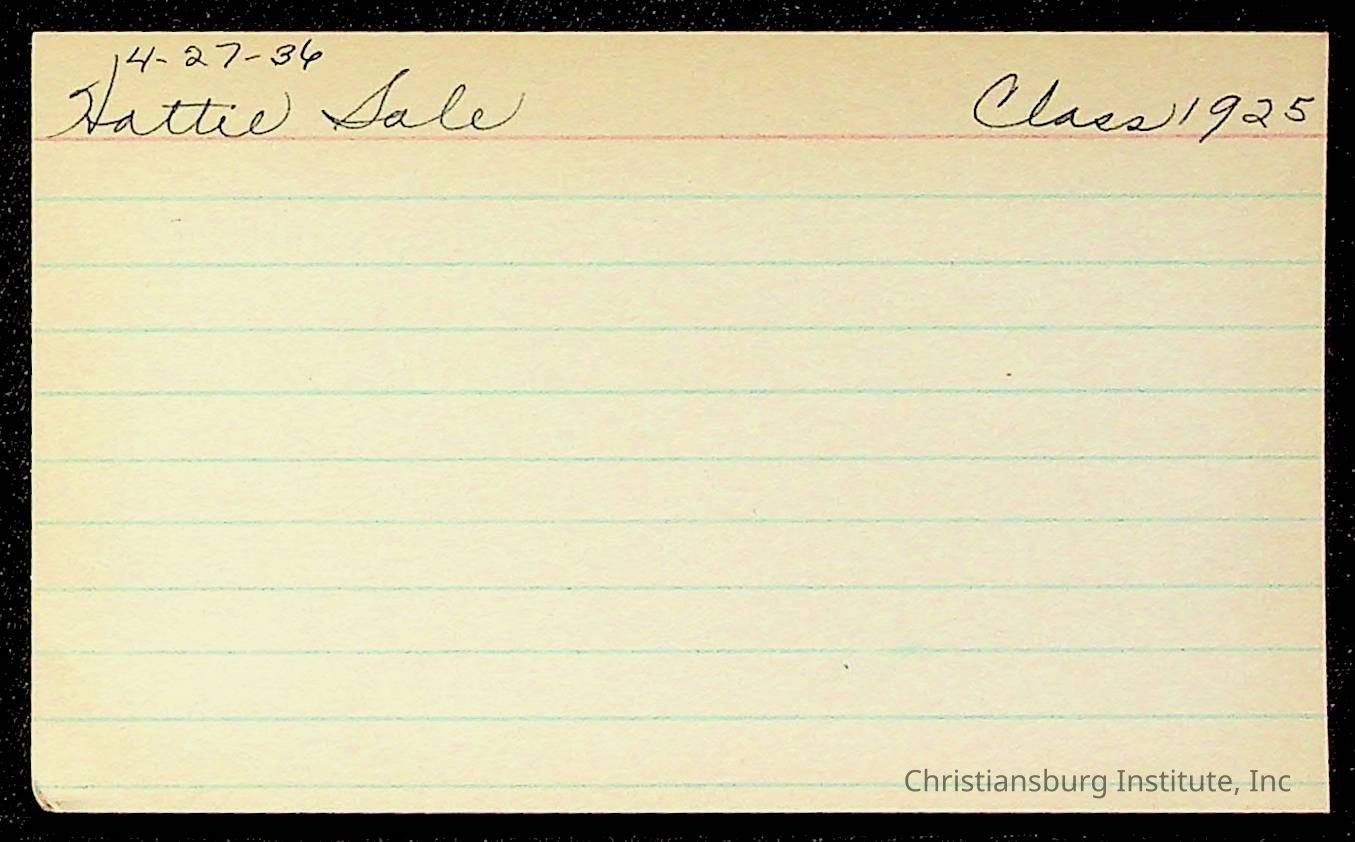 4-27-36
Hattie Sale Class 1925
Christiansburg Institute, Inc